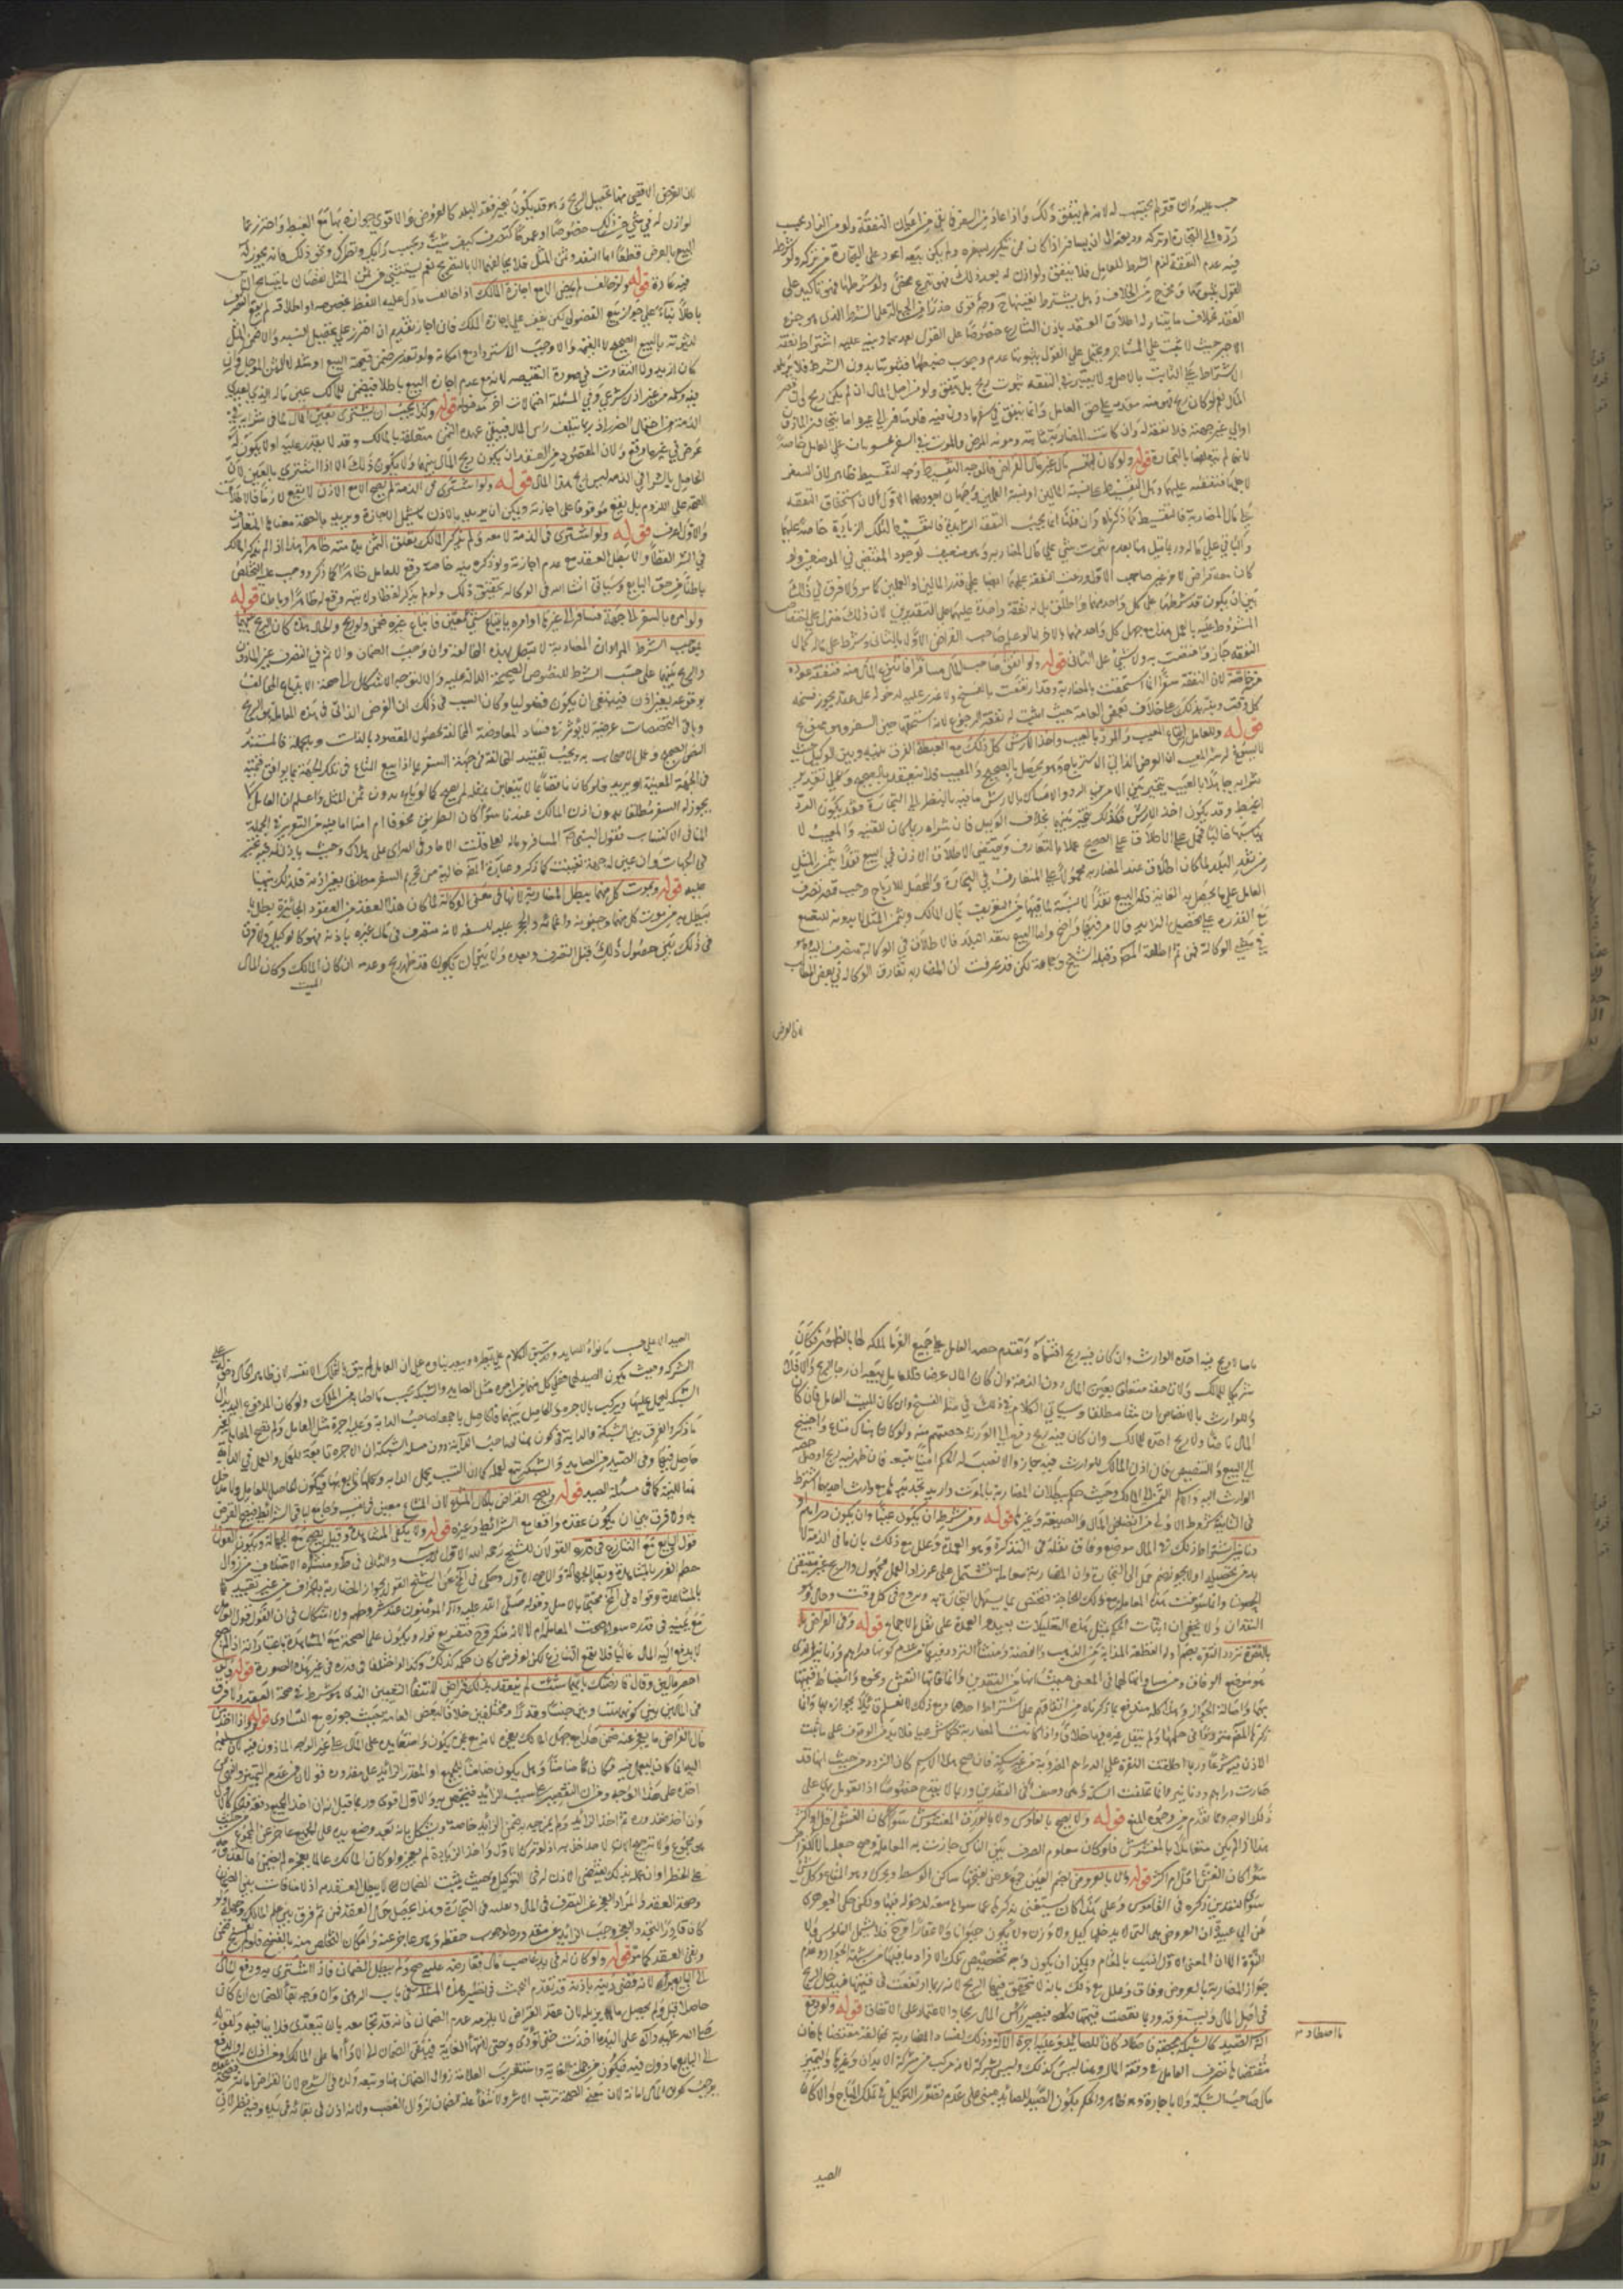 حسب عليه وان قتر لم يحتسب له لانه لم ينفق ذلك واذا عاد من السفر فما بقي من اعيان النفقة ولو من الزاد يجب
رده الى التجارة او تركه وديعة الى ان يسافر اذا كان ممن يتكرر سفره ولم يكن بيعه اعود على التجارة من تركه ولو شرط
فيه عدم النفقة لزم الشرط للعامل فلا ينفق ولو اذن له بعد ذلك فهو تبرع محض ولو شرطها فهو تاكيد على
القول بثبوتها ومخرج من الخلاف وهل يشترط تعيينها ح وجه قوي حذرا من الجهالة في الشرط الذي هو جزء
العقد بخلاف ما يتناوله اطلاق العقد باذن الشارع خصوصا على القول بعدمها
الاجير حيث لا تثبت على المستاجر ويحتمل على القول بثبوتها عدم وجوب ضبطها لثبوتها بدون الشرط فلا يزيد
الاشتراط على الثابت بالاصل ولا يعتبر في النفقة ثبوت ربح بل ينفق ولو من اصل المال ان لم يكن ربح وان قصر
المال نعم لو كان ربح فهو منه مقدم على حق العامل وانما ينفق في سفر ماذون فيه فلو سافر الى غيره اما بتجاوز الماذون
او الى غير جهته فلا نفقة له وان كانت المضاربة ثابتة ومونة المرض والموت في السفر محسوبات على العامل خاصة
لانها لم تتعلق بالتجارة قوله ولو كان لنفسه مال غير مال القراض فالوجه التقسيط وجه التقسيط ظاهر لان السفر
لاجلهما فنفقته عليهما وهل التقسيط على نسبة المالين او نسبة العملين وجهان اجودهما الاول لان استحقاق النفقة
في مال المضاربة فالتقسيط كما ذكرناه وان قلنا انما يجب النفقة الزايدة فالتقسيط لتلك الزيادة خاصة عليهما
والباقي على ماله وربما قيل هنا بعدم ثبوت شئ على مال المضاربة وهو ضعيف لوجود المقتضي في الموضعين ولو
كان معه قراض لاخر غير صاحب الاول وزعت النفقة عليهما ايضا على قدر المالين او العملين كما مر ولا فرق في ذلك
بين ان يكون قد شرطها على كل واحد منهما واطلق بل له نفقة واحدة عليهما على التقديرين لان ذلك منزل على اختصاص
المشروط عليه بالعمل هذا مع جهل كل واحد منهما بالاخر اما لو علم صاحب القراض الاول بالثاني وشرط على ماله كمال
النفقة جاز واختصت به ولا شئ على الثاني قوله ولو اتفق صاحب المال مسافرا فانتزع المال منه فنفقة عوده
من خاصة لان النفقة سواء انما استحقت بالمضاربة وقد ارتفعت بالفسخ ولا غرر عليه لدخوله على عقد يجوز فسخه
كل وقت ونبه بذلك على خلاف بعض العامة حيث اثبت له نفقة الرجوع لانه استحقها حين السفر وهو ممنوع
قوله وللعامل ابتياع المعيب والرد بالعيب واخذ الارش كل ذلك مع الغبطة الفرق بينه وبين الوكيل حيث
لا يسوغ له شراء المعيب ان الغرض الذاتي الاسترباح وهو يحصل بالصحيح والمعيب فلا يتقيد بالصحيح وعلى تقدير
شرائه جاهلا بالعيب يتخير بين الامرين من الرد والامساك بالارش ما فيه بالنظر الى التجارة فقد يكون الرد
اغبط وقد يكون اخذ الارش فلذلك تخير بينهما بخلاف الوكيل فان شراه ربما كان للقنية والمعيب لا
يناسبها غالبا فحمل على الاطلاق على الصحيح عملا بالمتعارف ويقتضي الاطلاق الاذن في البيع نقدا بثمن المثل
من نقد البلد لما كان اطلاق عقد المضاربة محمولا على المتعارف في التجارة والمحصل للارباح وجب قصر تصرف
العامل على ما يحصل به الغاية فله البيع نقدا لا نسيئة لما فيها من التغرير بمال المالك وبثمن المثل لا بدونه للتضييع
مع القدرة على تحصيل الزائد فالامر فيهما واضح واما البيع بنقد البلد فالاطلاق في الوكالة منصرف اليه وهو
في معنى الوكالة فمن ثم اطلقه المصنف وقبله الشيخ وجماعة لكن قد عرفت ان المضاربة تفارق الوكالة في بعض المطالب
فالغرض
لان الغرض الاقصى منها تحصيل الربح وهو قد يكون بغير نقد البلد كالعروض والاقوى جوازه بها مع الغبطة واحترز بما
لو اذن له في شئ من ذلك خصوصا او عموما كتصرف كيف شئت وبحسب رأيك ونظرك ونحو ذلك فانه يجوز له
البيع بالعرض قطعا اما النقد وثمن المثل فلا يخالفهما الا بالتصريح نعم يستثنى من ثمن المثل نقصان ما يتسامح الناس
فيه عادة قوله ولو خالف لم يمض الا مع اجازة المالك اذا خالف ما دل عليه اللفظ بخصوصه او اطلاقه لم يقع التصرف
باطلا بناء على جواز بيع الفضولي لكن يقف على اجازة المالك فان اجاز نفذ ثم ان قدر على تحصيل النسيئة والا ضمن الثمن
لثبوته بالبيع الصحيح لا القيمة والا وجب الاسترداد مع امكانه ولو تعذر ضمن قيمة المبيع او مثله لا الثمن المؤجل وان
كان ازيد ولا التفاوت في صورة النقيصة لانه مع عدم اجازة البيع باطلا فيضمن للمالك عين ماله الذي تعدى
فيه وسلمه من غير اذن شرعي وفي المسئلة احتمالات اخر مدخولة قوله وكذا يجب ان يشتري بعين المال لما في شرائه في
الذمة من احتمال الضرر اذ ربما يتلف راس المال فيبقى عهدة الثمن متعلقة بالمالك وقد لا يقدر عليه او لا يكون له
غرض في غير ما دفع ولان المقصود من العقد ان يكون ربح المال بينهما ولا يكون ذلك الا اذا اشترى بالعين لان
الحاصل بالشراء في الذمة ليس ربح هذا المال قوله ولو اشترى في الذمة لم يصح الا مع الاذن لا يقع لازما فالاطلاق
الصحة على اللزوم بل يقع موقوفا على اجازته ويمكن ان يريد بالاذن ما يشمل الاجازة ويريد بالصحة معناها المتعارف
والاول اعرف قوله ولو اشترى في الذمة لا معه ولم يذكر المالك تعلق الثمن بذمته ظاهرا هذا اذا لم يذكر المالك
في الشراء لفظا والا بطل العقد مع عدم اجازته ولو ذكره بنيته خاصة وقع للعامل ظاهرا كما ذكر ووجب عليه التخلص
باطنا من حق البائع وسياتي انشاء الله في الوكالة تحقيق ذلك ولو لم يذكره لفظا ولا نية وقع له ظاهرا وباطنا قوله
ولو امره بالسفر الى جهة فسافر الى غيرها او امره بابتياع شئ معين فابتاع غيره ضمن ولو ربح والحال هذه كان الربح بينهما
بموجب الشرط المراد ان المضاربة لا تبطل بهذه المخالفة وان وجب الضمان والاثم في التصرف غير الماذون
والربح بينهما على حسب الشرط للنصوص الصحيحة الدالة عليه والا لتوجه الاشكال الى صحة الابتياع المخالف
لوقوعه بغير اذن فينبغي ان يكون فضوليا وكان السبب في ذلك ان الغرض الذاتي في هذه المعاملة هو الربح
وباقي التخصصات عرضية لا يؤثر في فساد المعاوضة المخالفة لحصول المقصود بالذات وبالجملة فالمستند
النص الصحيح وعمل الاصحاب به ويجب تقييد المخالفة في جهة السفر بما اذا بيع المتاع في تلك الجهة بما يوافق قيمته
في الجهة المعينة او يزيد فلو كان ناقصا بما لا يتغابن بمثله لم يصح كما لو باع بدون ثمن المثل واعلم ان العامل لا
يجوز له السفر مطلقا بدون اذن المالك عندنا سواء كان الطريق مخوفا ام امنا لما فيه من التغرير في الجملة
المنافي للاكتساب
في الجهات وان عين له جهة تعينت كما ذكر وعبارة المصنف خالية من تحريم السفر مطلقا بغير اذنه فلذلك نبهنا
عليه قوله وبموت كل منهما تبطل المضاربة لانها في معنى الوكالة لما كان هذا العقد من العقود الجائزة بطل بما
يبطل به من موت كل منهما وجنونه واغمائه والحجر عليه للسفه لانه متصرف في مال غيره باذنه فهو كالوكيل ولا فرق
في ذلك بين حصول ذلك قبل التصرف وبعده ولا بين ان يكون قد ظهر ربح وعدمه ثم ان كان المالك وكان المال
الميت
ناضا لا ربح فيه اخذه الوارث وان كان فيه ربح اقتسماه وتقدم حصة العامل على جميع الغرما لملكه لها بالظهور فكان
شريكا للمالك ولان حقه متعلق بعين المال دون الذمة وان كان المال عرضا فللعامل بيعه ان رجا الربح والا فلا
وللوارث الزامه بالانضاض ان شاء مطلقا وسياتي الكلام في ذلك في مسئلة الفسخ وان كان الميت العامل فان كان
المال ناضا ولا ربح اخذه المالك وان كان فيه ربح دفع الى الورثة حصتهم منه ولو كان هناك متاع واحتيج
الى البيع والتنضيض فان اذن المالك للوارث فيه جاز والا نصب له الحاكم امينا يبيعه فان ظهر فيه ربح اوصل حصة
الوارث اليه والا سلم الثمن الى المالك وحيث حكم ببطلان المضاربة بالموت واريد تجديدها مع وارث احدهما اشترط
في الثانية شروط الاولى من انضاض المال والصيغة وغيرهما قوله ومن شرطه ان يكون عينا وان يكون دراهم او
دنانير اشتراط ذلك في المال موضع وفاق نقله في التذكرة وهو العمدة وعلل مع ذلك بان ما في الذمة لا
بد من تحصيله اولا
الجهتين وانما سوغت هذه المعاملة مع ذلك للحاجة فتختص بما يسهل التجارة به ويروج في كل وقت وحال وهو
النقدان ولا يخفى ان اثبات الحكم بمثل هذه التعليلات بعيد بل العمدة على نقل الاجماع قوله وفي القراض
بالنقرة تردد النقرة بضم اوله القطعة المذابة من الذهب والفضة ومنشأ التردد فيها من عدم كونها دراهم ودنانير الذي
هو موضع الوفاق ومن مساواتها لهما في المعنى حيث انها من النقدين وانما فاتها النقش ونحوه وانضباط قيمتها
بهما واصالة الجواز وهذا كله مندفع بما ذكرناه من اتفاقهم على اشتراط احدهما ومع ذلك لا نعلم قائلا بجوازه بها وانما
ذكرها المصنف مترددا في حكمها ولم ينقل غيره فيها خلافا واذا كانت المضاربة حكما شرعيا فلا بد من الوقوف على ما ثبت
الاذن فيه شرعا وربما اطلقت النقرة على الدراهم المضروبة من غير سكة فان صح هذا الاسم كان التردد من حيث انها قد
صارت دراهم ودنانير وانما تخلفت السكة وهي وصف في النقدين وربما لا يقدح خصوصا اذا تعومل بها على
ذلك الوجه ومما تقدم من وجوه المنع قوله ولا يصح بالفلوس ولا بالورق المغشوش سواء كان الغش اقل او اكثر
هذا اذا لم يكن متعاملا بالمغشوش فلو كان معلوم الصرف بين الناس جازت به المعاملة وصح جعله مالا للقراض
سواء كان الغش اقل ام اكثر قوله ولا بالعروض بضم العين جمع عرض بفتحها ساكن الوسط ويحرك وهو المتاع وكل شئ
سوى النقدين ذكره في القاموس وعلى هذا كان يستغنى بذكرها عما سواها معه لدخوله فيها ولكن حكى الجوهري
عن ابي عبيد ان العروض هي التي لا يدخلها كيل ولا وزن ولا يكون حيوانا ولا عقارا فح فلا يشمل الفلوس ولا
النقرة الا ان المعنى الاول انسب بالمقام ويمكن ان يكون وجه تخصيص تلك الافراد ما فيها من شبهة الجواز وعدم
جواز المضاربة بالعروض وفاق وعلل مع ذلك بانه لا يتحقق فيها الربح لانه ربما ارتفعت في قيمتها فيدخل الربح
في اصل المال ويستغرقه وربما نقصت قيمتها فيصير راس المال ربحا والاعتماد على الاتفاق قوله ولو دفع
الة الصيد كالشبكة بحصة فاصطاد كان للصائد وعليه اجرة الالة وذلك لفساد المضاربة بمخالفة مقتضاها فان
مقتضاها تصرف العامل في رقبة المال وهنا ليس كذلك وليس بشركة لانه مركب من شركة الابدان وغيرها ولتميز
مال صاحب الشبكة ولا باجارة وهو ظاهر والحكم بكون الصيد للصائد مبني على عدم تصور التوكيل في تملك المباح والا كان
فاصطاد
الصيد
الصيد الاعلى حسب ما نواه الصائد وقد سبق الكلام على نظيره
الشركة وحيث يكون الصيد لهما فعلى كل منهما من اجرة مثل الصائد والشبكة بحسب ما اصابه من الملك ولو كان المدفوع اليه بدل
الشبكة دابة ليحمل عليها ويركب بالاجرة والحاصل بينهما فالحاصل باجمعه لصاحب الدابة وعليه اجرة مثل العامل ولم تصح المعاملة بغير
ما ذكر والفرق بين الشبكة والدابة في كون نمائها لصاحب الدابة دون مسئلة الشبكة ان الاجرة تابعة للعمل والعمل في الدابة
حاصل منها وفي الصيد من الصائد والشبكة تبع لعمله
قوله ويصح القراض بالمال المشاع لان المشاع معين في نفسه وجامع لباقي الشرائط فيصح القراض
به ولا فرق بين ان يكون عقده واقعا مع الشرائط وغيره قوله ولا يكفي المشاهدة وقيل يصح مع الجهالة ويكون القول
قول العامل مع التنازع في قدره القولان للشيخ رحمه الله الاول في ط والثاني في ف ومنشاء الاختلاف من زوال
معظم الغرر بالمشاهدة وبقاء الجهالة والاصح الاول وحكى في المختلف عن الشيخ القول بجواز المضاربة بالجزاف من غير تقييد
بالمشاهدة وقواه في المختلف محتجا بالاصل وقوله صلى الله عليه واله المؤمنون عند شروطهم ولا اشكال في ان القول قول العامل
مع يمينه في قدره سواء صحت المعاملة ام لا لانه منكر
لا بدفع اليه المال غالبا فلا يقع التنازع لكن لو فرض كان حكمه كذلك وكذا لو اختلفا في قدره في غير هذه الصورة قوله ولو
احضر مالين وقال قارضتك بايهما شئت لم ينعقد بذلك قراض لانتفاء التعيين الذي هو شرط في صحة العقد ولا فرق
في المالين بين كونهما متساويين جنسا وقدرا ومختلفين خلافا لبعض العامة حيث جوزه مع التساوي قوله واذا اخذ من
مال القراض ما يعجز عنه ضمن هذا مع جهل المالك بعجزه لانه مع عجزه يكون واضعا يده على المال على غير الوجه الماذون فيه لان تسليمه
اليه انما كان ليعمل فيه فكان ضامنا وهل يكون ضامنا للجميع او للقدر الزايد على مقدوره قولان من عدم التميز والنهي عن
اخذه على هذا الوجه ومن ان التقصير بسبب الزائد فيختص به والاول اقوى وربما قيل انه ان اخذ الجميع دفعة فكالاول
وان اخذ مقدوره ثم اخذ الزايد ولم يمزجه به ضمن الزايد خاصة ويشكل بانه بعد وضع يده على الجميع عاجز عن المجموع من حيث
هو مجموع ولا ترجيح الان لاحد اجزائه اذ لو ترك الاول واخذ الزيادة لم يعجز ولو كان المالك عالما بعجزه لم يضمن اما لقدومه
على الخطر او لان علمه بذلك يقتضي الاذن له في التوكيل وحيث يثبت الضمان لا يبطل العقد به اذ لا منافاة بين الضمان
وصحة العقد والمراد بالعجز عن التصرف في المال وتقليبه في التجارة وهذا يحصل حال العقد فمن ثم فرق بين علم المالك وجهله ولو
كان قادرا فتجدد العجز وجب عليه رد الزايد عن مقدوره لوجوب حفظه وهو عاجز عنه وامكان التخلص منه بالفسخ فلو لم يفسخ ضمن
وبقي العقد كما مر قوله ولو كان له في يد غاصب مال فقارضه عليه صح ولم يبطل الضمان فاذا اشترى به ودفع المال
الى البائع برئ لانه قضى دينه باذنه قد تقدم البحث في نظير هذه المسئلة في باب الرهن وان وجه بقاء الضمان انه كان
حاصلا قبل ولم يحصل ما يزيله لان عقد القراض لا يلزمه عدم الضمان فانه قد يجامعه بان يتعدى فلا ينافيه ولقوله
صلى الله عليه واله على اليد ما اخذت حتى تؤدي وحتى لانتهاء الغاية فيبقى الضمان الى الاداء اما على المالك او من اذن له والدفع
الى البائع ماذون فيه فيكون من جملة الغاية واستقرب العلامة زوال الضمان هنا وتبعه ولده في الشرح لان القراض امانة
يوجب كون المال امانة لان معنى الصحة ترتب الاثر ولانتفاء علة الضمان لزوال الغصب ولانه اذن في بقائه في يده وفيه نظر لان